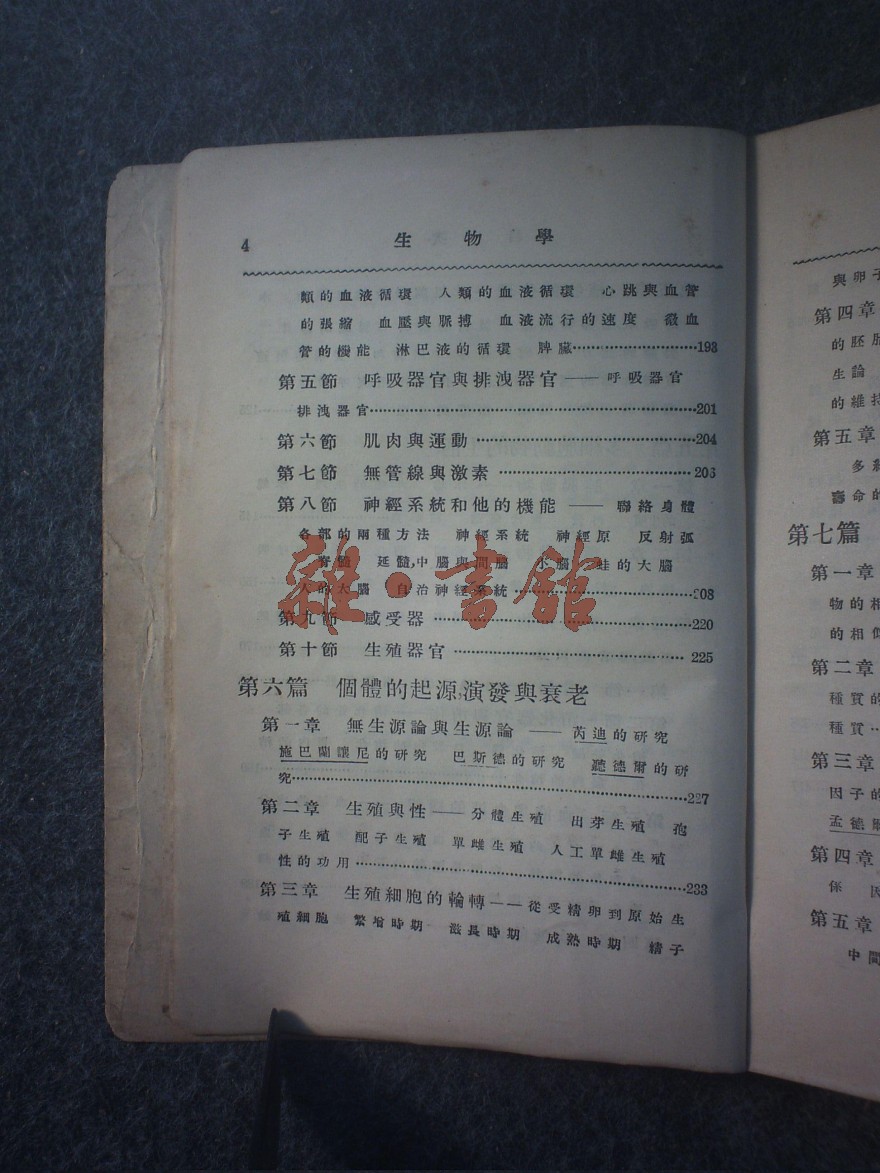 4 生物學
類的血液循環 人類的血液循環 心跳與血管
的張縮 血壓與脈搏 血液流行的速度 微血
管的機能 淋巴液的循環 脾臟 193
第五節 呼吸器官與排洩器官——呼吸器官
排洩器官 201
第六節 肌肉與運動 204
第七節 無管線與激素 206
第八節 神經系統和他的機能——聯絡身體
各部的兩種方法 神經系統 神經原 反射弧
脊髓 延髓,中腦與間腦 小腦 蛙的大腦
人的大腦 自治神經系統 208
第九節 感受器 220
第十節 生殖器官 225
第六篇 個體的起源,演發與衰老
第一章 無生源論與生源論——芮迪的研究
施巴蘭讓尼的研究 巴斯德的研究 聽德爾的研
究 227
第二章 生殖與性——分體生殖 出芽生殖 孢
子生殖 配子生殖 單雌生殖 人工單雌生殖
性的功用 233
第三章 生殖細胞的輪轉——從受精卵到原始生
殖細胞 繁增時期 滋長時期 成熟時期 精子
雜·書館
與卵子
第四章
的胚胎
生論
的維持
第五章
多細
壽命的
第七篇
第一章
物的相
的相似
第二章
種質的
種質
第三章
因子的
孟德爾
第四章
係 因
第五章
中間